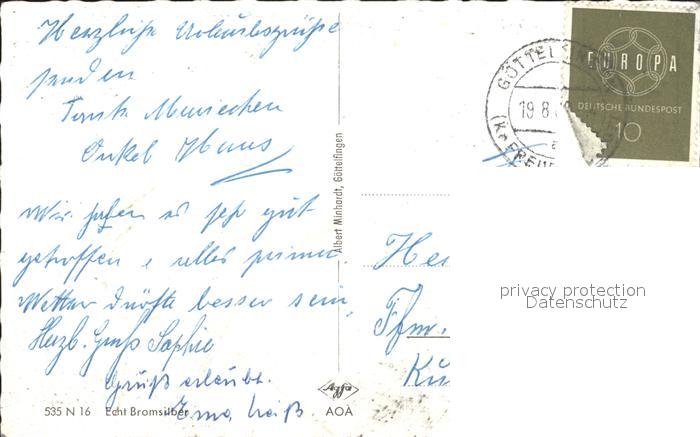 Herzliche Urlaubsgrüße
senden
Tante Mariechen
Onkel Hans
Wir haben es sehr gut
getroffen, alles prima
Wetter dürfte besser sein,
Herzl. Gruß Sophie
Gruß erlaubt.
535 N 16 Echt Bromsilber
Albert Minhardt, Göttelfingen
Agfa
AOA
GÖTTEL
19.8.
(Kr. FREU
EUROPA
DEUTSCHE BUNDESPOST
10
Ffm.
privacy protection
Datenschutz